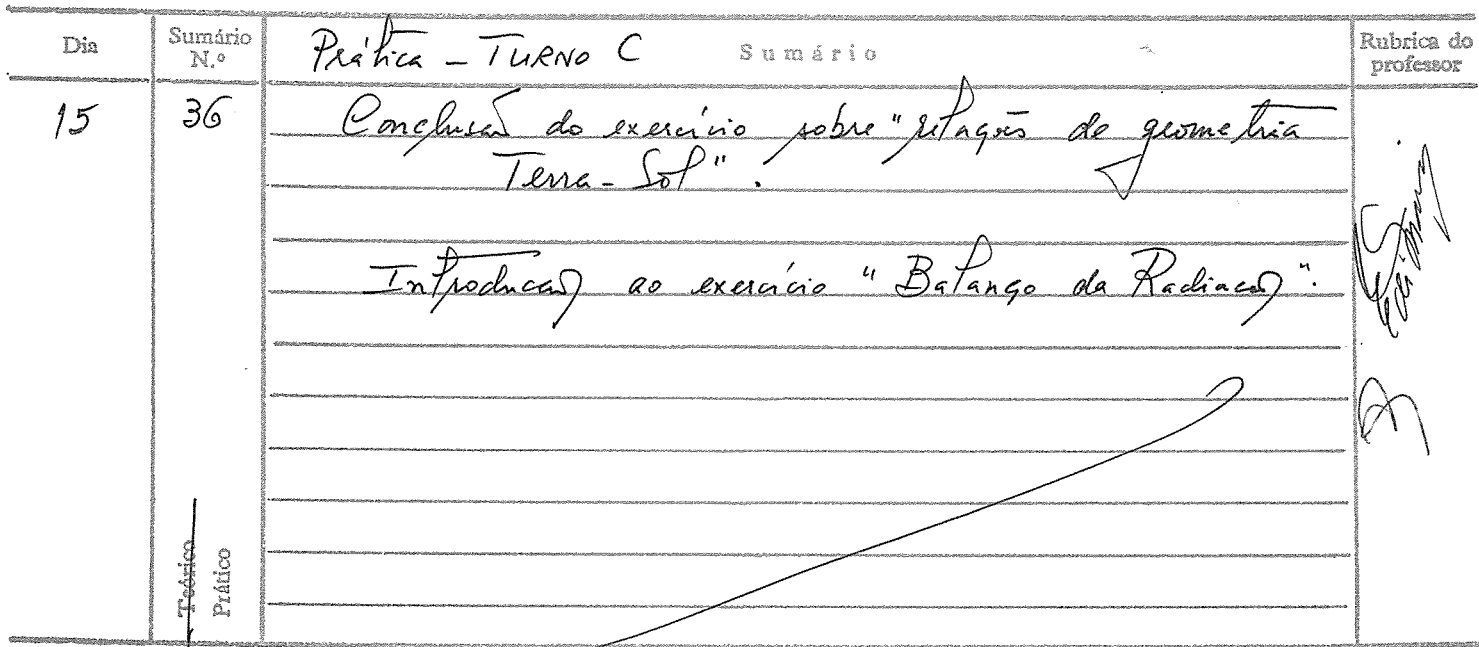 Dia
Sumário N.º
Prática - TURNO C
Sumário
Rubrica do professor
15
36
Conclusão do exercício sobre "relações de geometria
Terra-Sol".
Introdução ao exercício "Balanço da Radiação".
Teórico
Prático